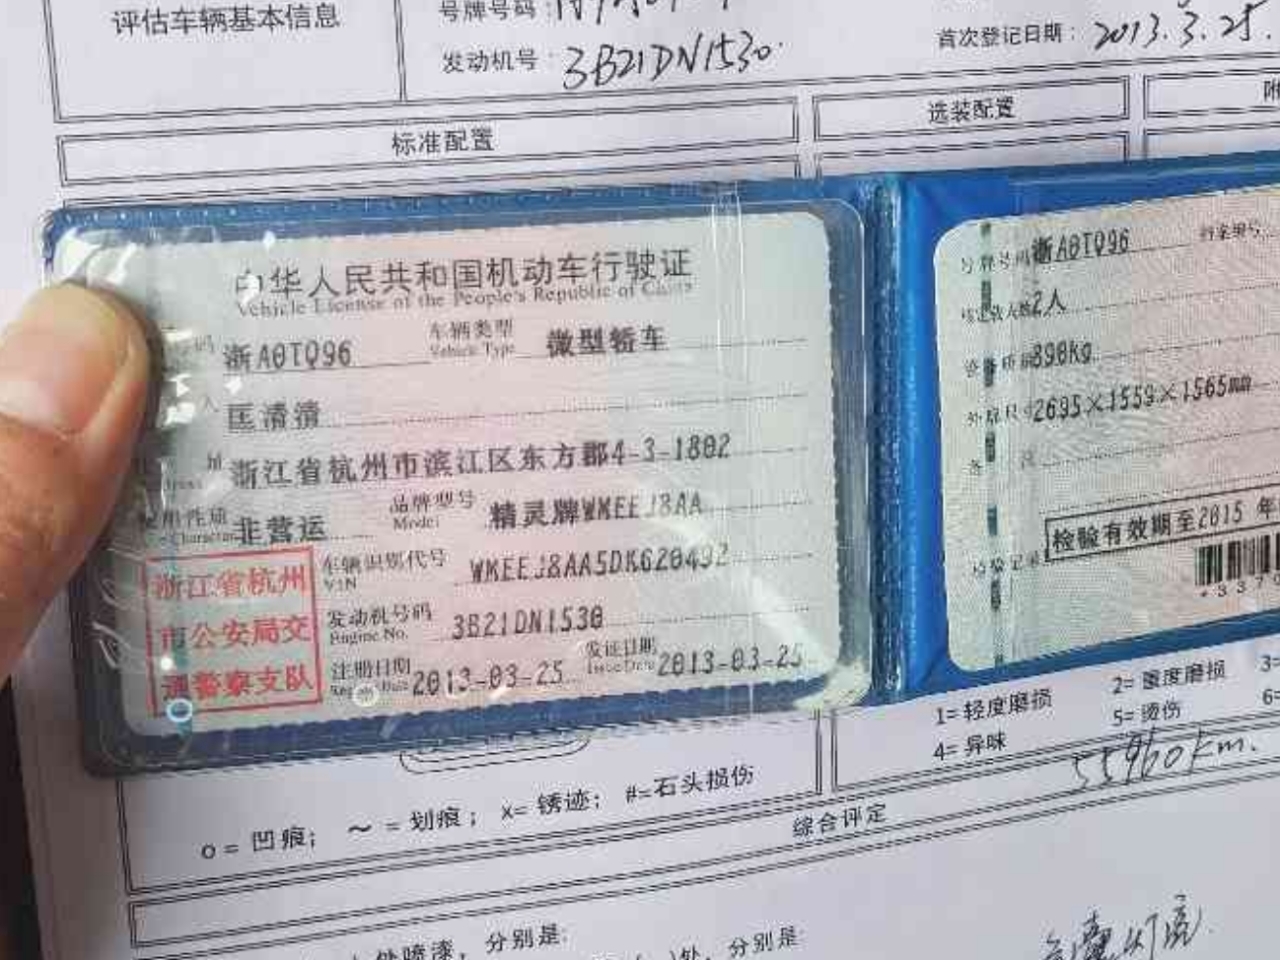 评估车辆基本信息
号牌号码:
首次登记日期: 2013.3.25.
发动机号: 3B21DN1530
选装配置
标准配置
中华人民共和国机动车行驶证
Vehicle License of the People's Republic of China
浙A0TQ96
车辆类型 微型轿车
Vehicle Type
匡清清
浙江省杭州市滨江区东方郡4-3-1802
品牌型号 精灵牌WMEEJ8AA
Model
非营运
浙江省杭州
市公安局交
通警察支队
车辆识别代号 WKEEJ8AA5DK620492
VIN
发动机号码 3B21DN1530
Engine No.
注册日期 2013-03-25
发证日期 2013-03-25
Issue Date
号牌号码 浙A0TQ96
2人
890kg
外廓尺寸 2695×1559×1565mm
检验有效期至2015 年
1=轻度磨损
2=重度磨损
3=
4=异味
5=烫伤
6=
55960km.
o=凹痕; ～=划痕; x=锈迹; #=石头损伤
综合评定
处喷漆, 分别是:
)处, 分别是: